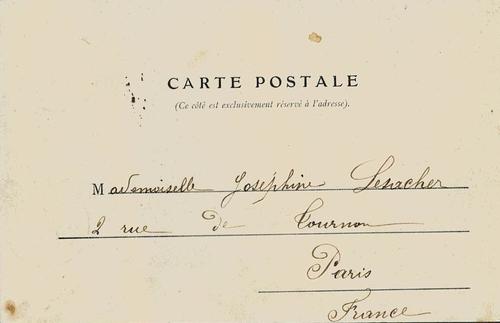 CARTE POSTALE
(Ce côté est exclusivement réservé à l'adresse).
Mademoiselle Joséphine Lesacher
2 rue de Tournon
Paris
France